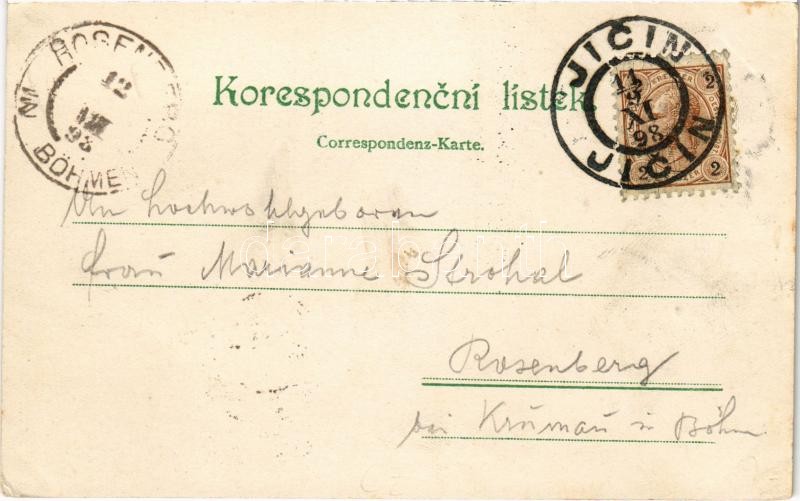 ROSENBERG
12
98
IN BÖHMEN
Korespondenční lístek.
Correspondenz-Karte.
JIČIN
11
XI
98
JIČIN
KREUZER
2
2 2
An Hochwohlgeboren
Frau Marianne Strohal
Rosenberg
bei Krumau in Böhm.
darabanth